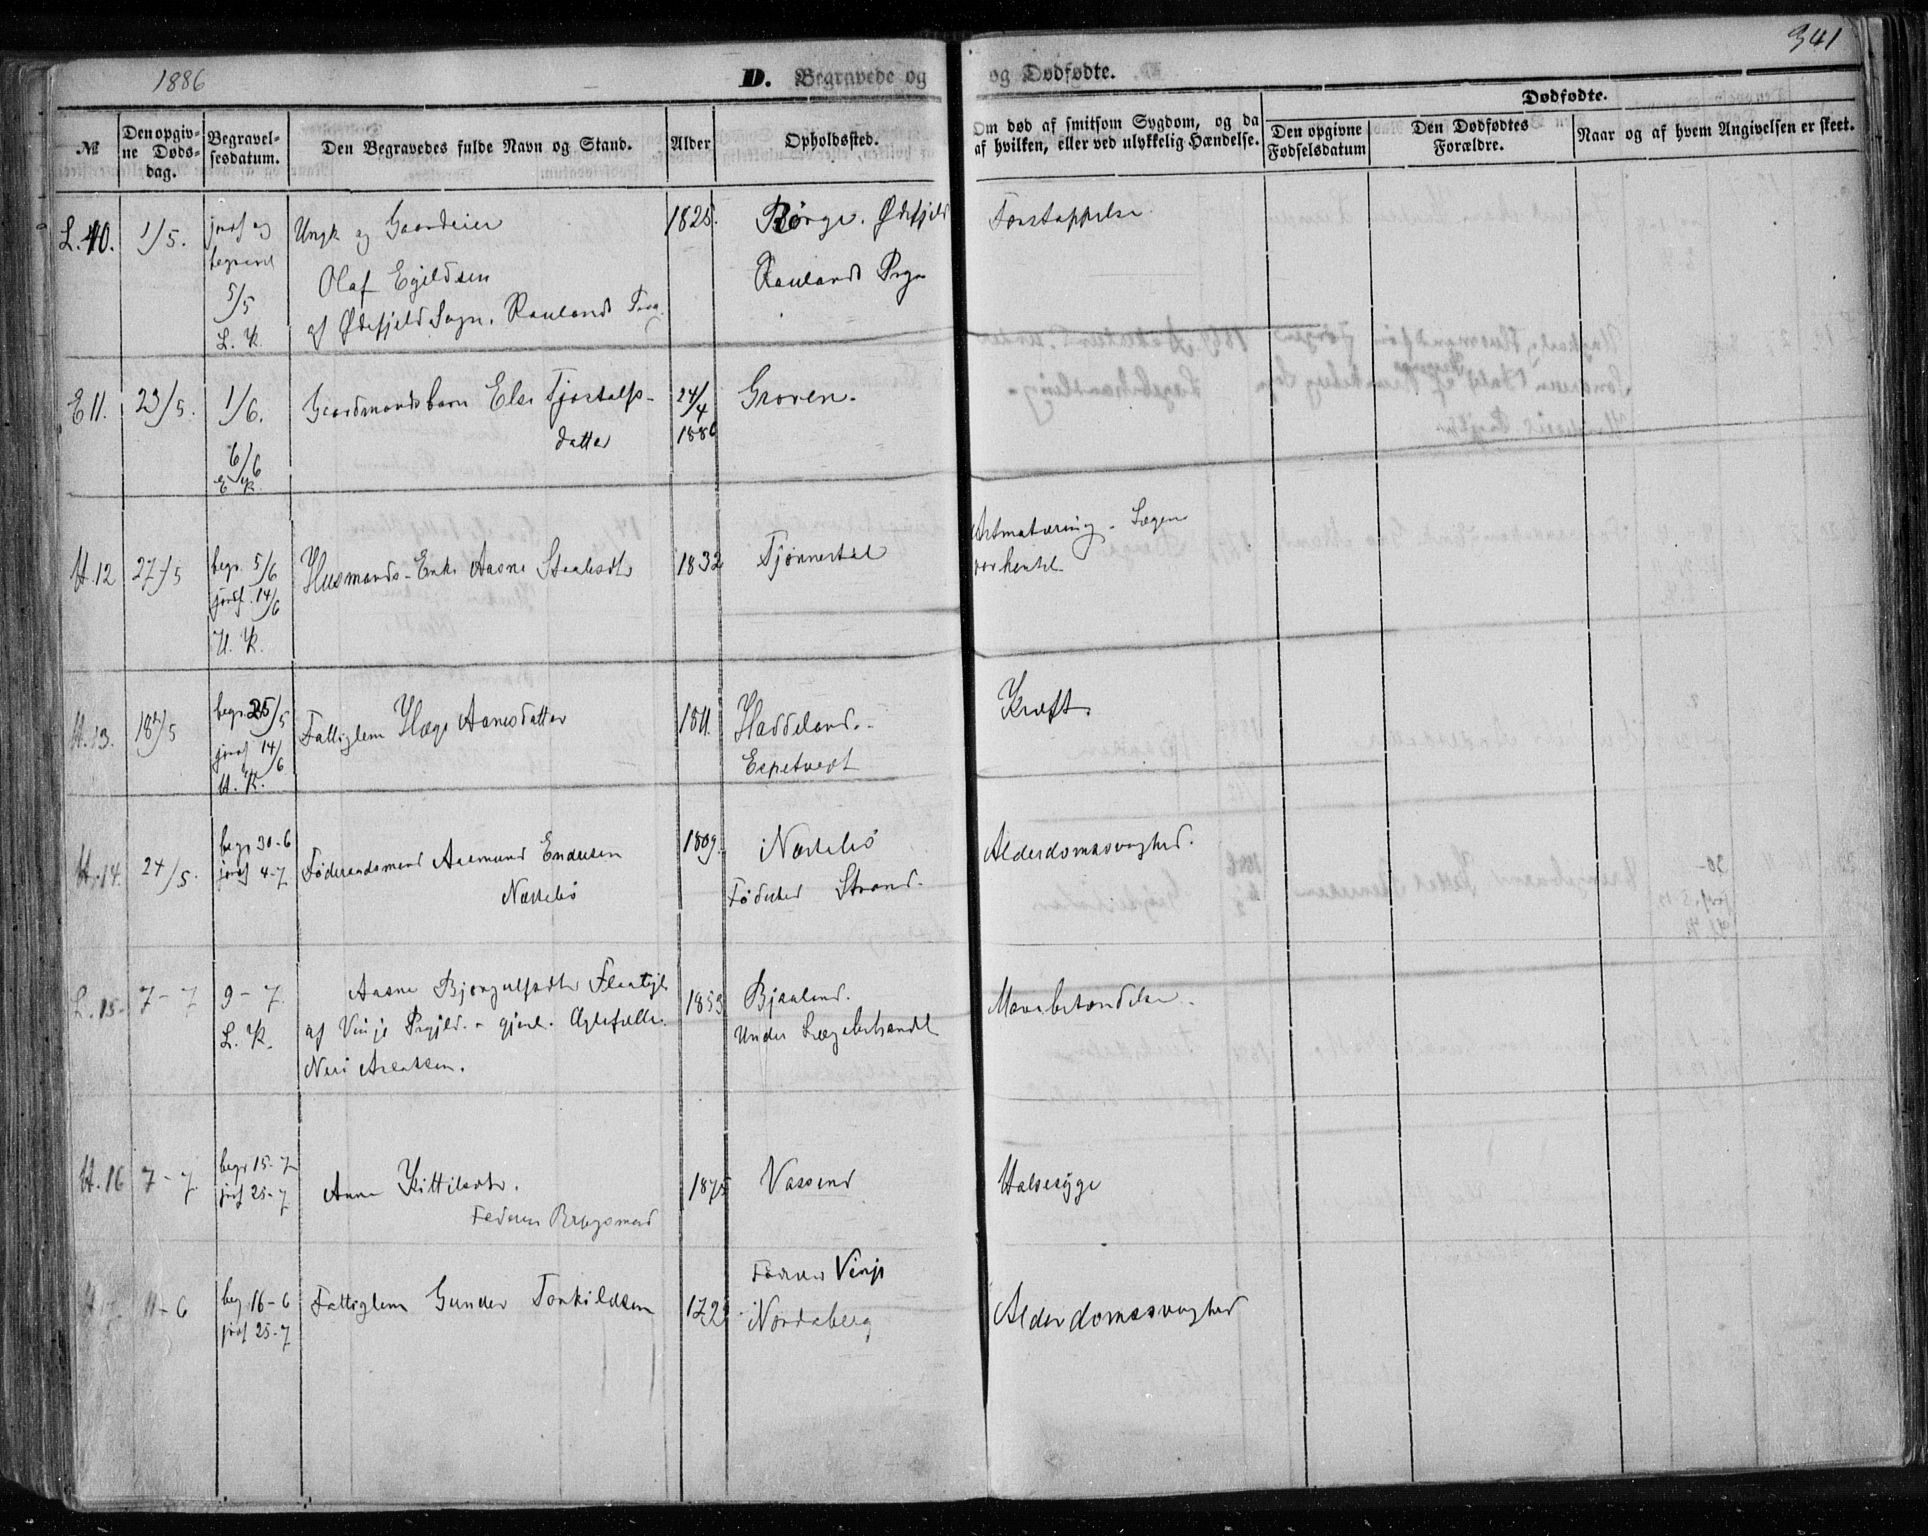 1886
D. Begravede og
og Dødfødte.
341
Dødfødte.
№
Den opgivne Dødsdag.
Begravelsesdatum.
Den Begravedes fulde Navn og Stand.
Alder
Opholdssted.
Om død af smitsom Sygdom, og da af hvilken, eller ved ulykkelig Hændelse.
Den opgivne Fødselsdatum
Den Dødfødtes Forældre.
Naar og af hvem Angivelsen er skeet.
L. 10. 1/5. jordf og begravet 5/5 L. K.
Ungk og Gaardeier
Olaf Egildsen
af Øifjeld Sogn. Raulands Præg.
1825.
Børge. Øifjeld
Raulands Prgj
Forstoppelse
E 11. 23/5. 1/6. 6/6 E K.
Gaardmandsbarn Else Tjostolfsdatter
24/4 1886
Groven.
H. 12 27/5 begr. 5/6 jordf. 14/6 H. K.
Husmands-Enke Aasne
1832
Tjønnestøl
H. 13. 18/5 begr. 25/5 jordf 14/6 H. K.
Fattiglem Hæge Aanesdatter
1811.
Haddeland.
Espetveit
Kræft.
H. 14. 24/5. begr 30-6 jordf 4-7
Føderaadsmand Aasmund Endresen
Næstebø
1809.
Næstebø
Fødested Strand.
Alderdomssvaghed.
L. 15. 7-7 9-7. L. K.
Aasne Bjørgulfsdtr
af Vinje Prgjld. - gjenl. Ægtefælle
Neri Aslaksen.
1853
Bjaaland.
Under Lægebehandl
Mavebetændelse.
H. 16 7-7. begr 15-7 jordf 25-7
Anne Kittilsdtr.
Faderen Brugsmand
1875
Vassend
Halsesyge
H 17. 11-6 begr 16-6 jordf 25-7
Fattiglem Gunder Torkildsen
Vinje
Nordaberg
Alderdomssvaghed